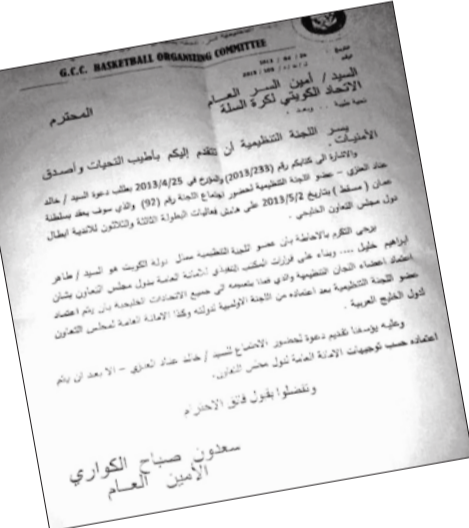 G.C.C. BASKETBALL ORGANIZING COMMITTEE
السيد / أمين السر العـــام
المحترم
الاتحاد الكويتي لكرة السلة
تحية طيبة .. وبعد ،
يسر اللجنة التنظيمية أن تتقدم إليكم بأطيب التحيات وأصدق
الأمنيات .
والاشارة الى كتابكم رقم (2013/233) والمؤرخ في 2013/4/25 بطلب دعوة السيد / خالد
عناد العنزي – عضو اللجنة التنظيمية لحضور إجتماع اللجنة رقم (92) والذي سوف يعقد بسلطنة
عمان ( مسقط ) بتاريخ 2013/5/2 على هامش فعاليات البطولة الثالثة والثلاثون للاندية ابطال
دول مجلس التعاون الخليجي .
يرجى التكرم بالاحاطة بأن عضو اللجنة التنظيمية ممثل دولة الكويت هو السيد / طاهر
ابراهيم خليل .... وبناء على قرارات المكتب التنفيذي للأمانة العامة بدول مجلس التعاون بشأن
اعتماد اعضاء اللجان التنظيمية والذي تعميمه الى جميع الاتحادات الخليجية بأن يتم اعتماد
عضو اللجنة التنظيمية بعد اعتماده من اللجنة الاولمبية لدولته وكذا الامانة العامة لمجلس التعاون
لدول الخليج العربية .
وعليه يؤسفنا تقديم دعوة لحضور الاجتماع للسيد / خالد عناد العنزي – الا بعد ان يتم
اعتماده حسب توجيهات الامانة العامة لدول مجلس التعاون.
وتفضلوا بقبول فائق الاحترام
سعدون صباح الكواري
الأمين العـــام